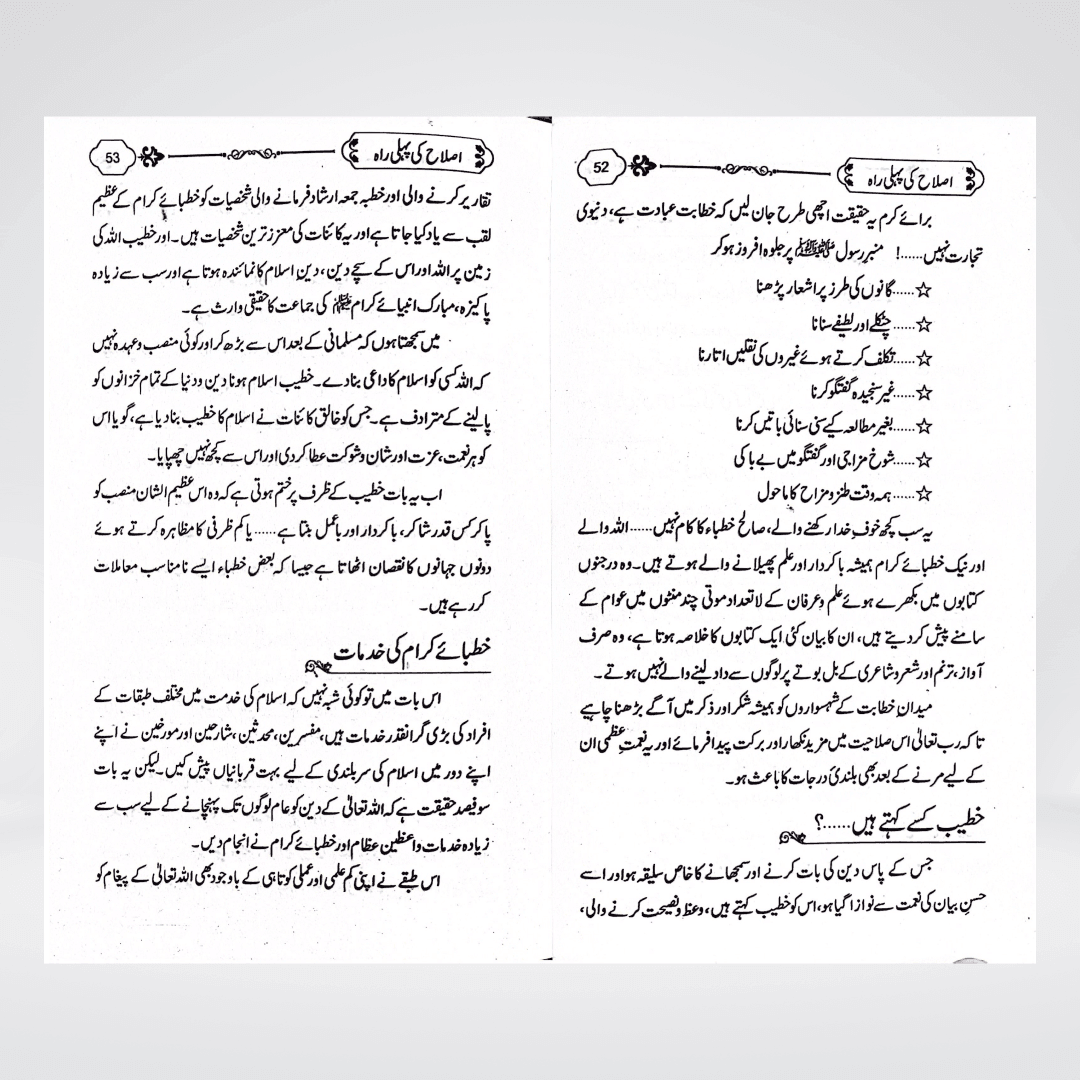 اصلاح کی پہلی راہ
52
برائے کرم یہ حقیقت اچھی طرح جان لیں کہ خطابت عبادت ہے، دنیوی
تجارت نہیں......! منبر رسول ﷺ پر جلوہ افروز ہو کر
☆......گانوں کی طرز پر اشعار پڑھنا
☆......چٹکلے اور لطیفے سنانا
☆......تکلف کرتے ہوئے غیروں کی نقلیں اتارنا
☆......غیر سنجیدہ گفتگو کرنا
☆......بغیر مطالعہ کیے سنی سنائی باتیں کرنا
☆......شوخ مزاجی اور گفتگو میں بے باکی
☆......ہمہ وقت طنز و مزاح کا ماحول
یہ سب کچھ خوف خدا رکھنے والے، صالح خطباء کا کام نہیں......اللہ والے
اور نیک خطبائے کرام ہمیشہ با کردار اور علم پھیلانے والے ہوتے ہیں۔ وہ درجنوں
کتابوں میں بکھرے ہوئے علم و عرفان کے لاتعداد موتی چند منٹوں میں عوام کے
سامنے پیش کر دیتے ہیں، ان کا بیان کئی ایک کتابوں کا خلاصہ ہوتا ہے، وہ صرف
آواز، ترنم اور شعر و شاعری کے بل بوتے پر لوگوں سے داد لینے والے نہیں ہوتے۔
میدانِ خطابت کے شہسواروں کو ہمیشہ شکر اور ذکر میں آگے بڑھنا چاہیے
تا کہ رب تعالیٰ اس صلاحیت میں مزید نکھار اور برکت پیدا فرمائے اور یہ نعمتِ عظمی ان
کے لیے مرنے کے بعد بھی بلندیٔ درجات کا باعث ہو۔
خطیب کسے کہتے ہیں......؟
جس کے پاس دین کی بات کرنے اور سمجھانے کا خاص سلیقہ ہو اور اسے
حسنِ بیان کی نعمت سے نوازا گیا ہو، اس کو خطیب کہتے ہیں، وعظ و نصیحت کرنے والی،
اصلاح کی پہلی راہ
53
تقاریر کرنے والی اور خطبہ جمعہ ارشاد فرمانے والی شخصیات کو خطبائے کرام کے عظیم
لقب سے یاد کیا جاتا ہے اور یہ کائنات کی معزز ترین شخصیات ہیں۔ اور خطیب اللہ کی
زمین پر اللہ اور اس کے سچے دین، دینِ اسلام کا نمائندہ ہوتا ہے اور سب سے زیادہ
پاکیزہ، مبارک انبیائے کرام کی جماعت کا حقیقی وارث ہے۔
میں سمجھتا ہوں کہ مسلمانی کے بعد اس سے بڑھ کر اور کوئی منصب و عہدہ نہیں
کہ اللہ کسی کو اسلام کا داعی بنا دے۔ خطیب اسلام ہونا دین و دنیا کے تمام خزانوں کو
پا لینے کے مترادف ہے۔ جس کو خالق کائنات نے اسلام کا خطیب بنا دیا ہے، گویا اس
کو ہر نعمت، عزت اور شان و شوکت عطا کر دی اور اس سے کچھ نہیں چھپایا۔
اب یہ بات خطیب کے ظرف پر ختم ہوتی ہے کہ وہ اس عظیم الشان منصب کو
پا کر کس قدر شاکر، با کردار اور با عمل بنتا ہے......یا کم ظرفی کا مظاہرہ کرتے ہوئے
دونوں جہانوں کا نقصان اٹھاتا ہے جیسا کہ بعض خطباء ایسے نامناسب معاملات
کر رہے ہیں۔
خطبائے کرام کی خدمات
اس بات میں تو کوئی شبہ نہیں کہ اسلام کی خدمت میں مختلف طبقات کے
افراد کی بڑی گرانقدر خدمات ہیں، مفسرین، محدثین، شارحین اور مورخین نے اپنے
اپنے دور میں اسلام کی سر بلندی کے لیے بہت قربانیاں پیش کیں۔ لیکن یہ بات
سو فیصد حقیقت ہے کہ اللہ تعالیٰ کے دین کو عام لوگوں تک پہنچانے کے لیے سب سے
زیادہ خدمات واعظین عظام اور خطبائے کرام نے انجام دیں۔
اس طبقے نے اپنی کم علمی اور عملی کوتاہی کے باوجود بھی اللہ تعالیٰ کے پیغام کو